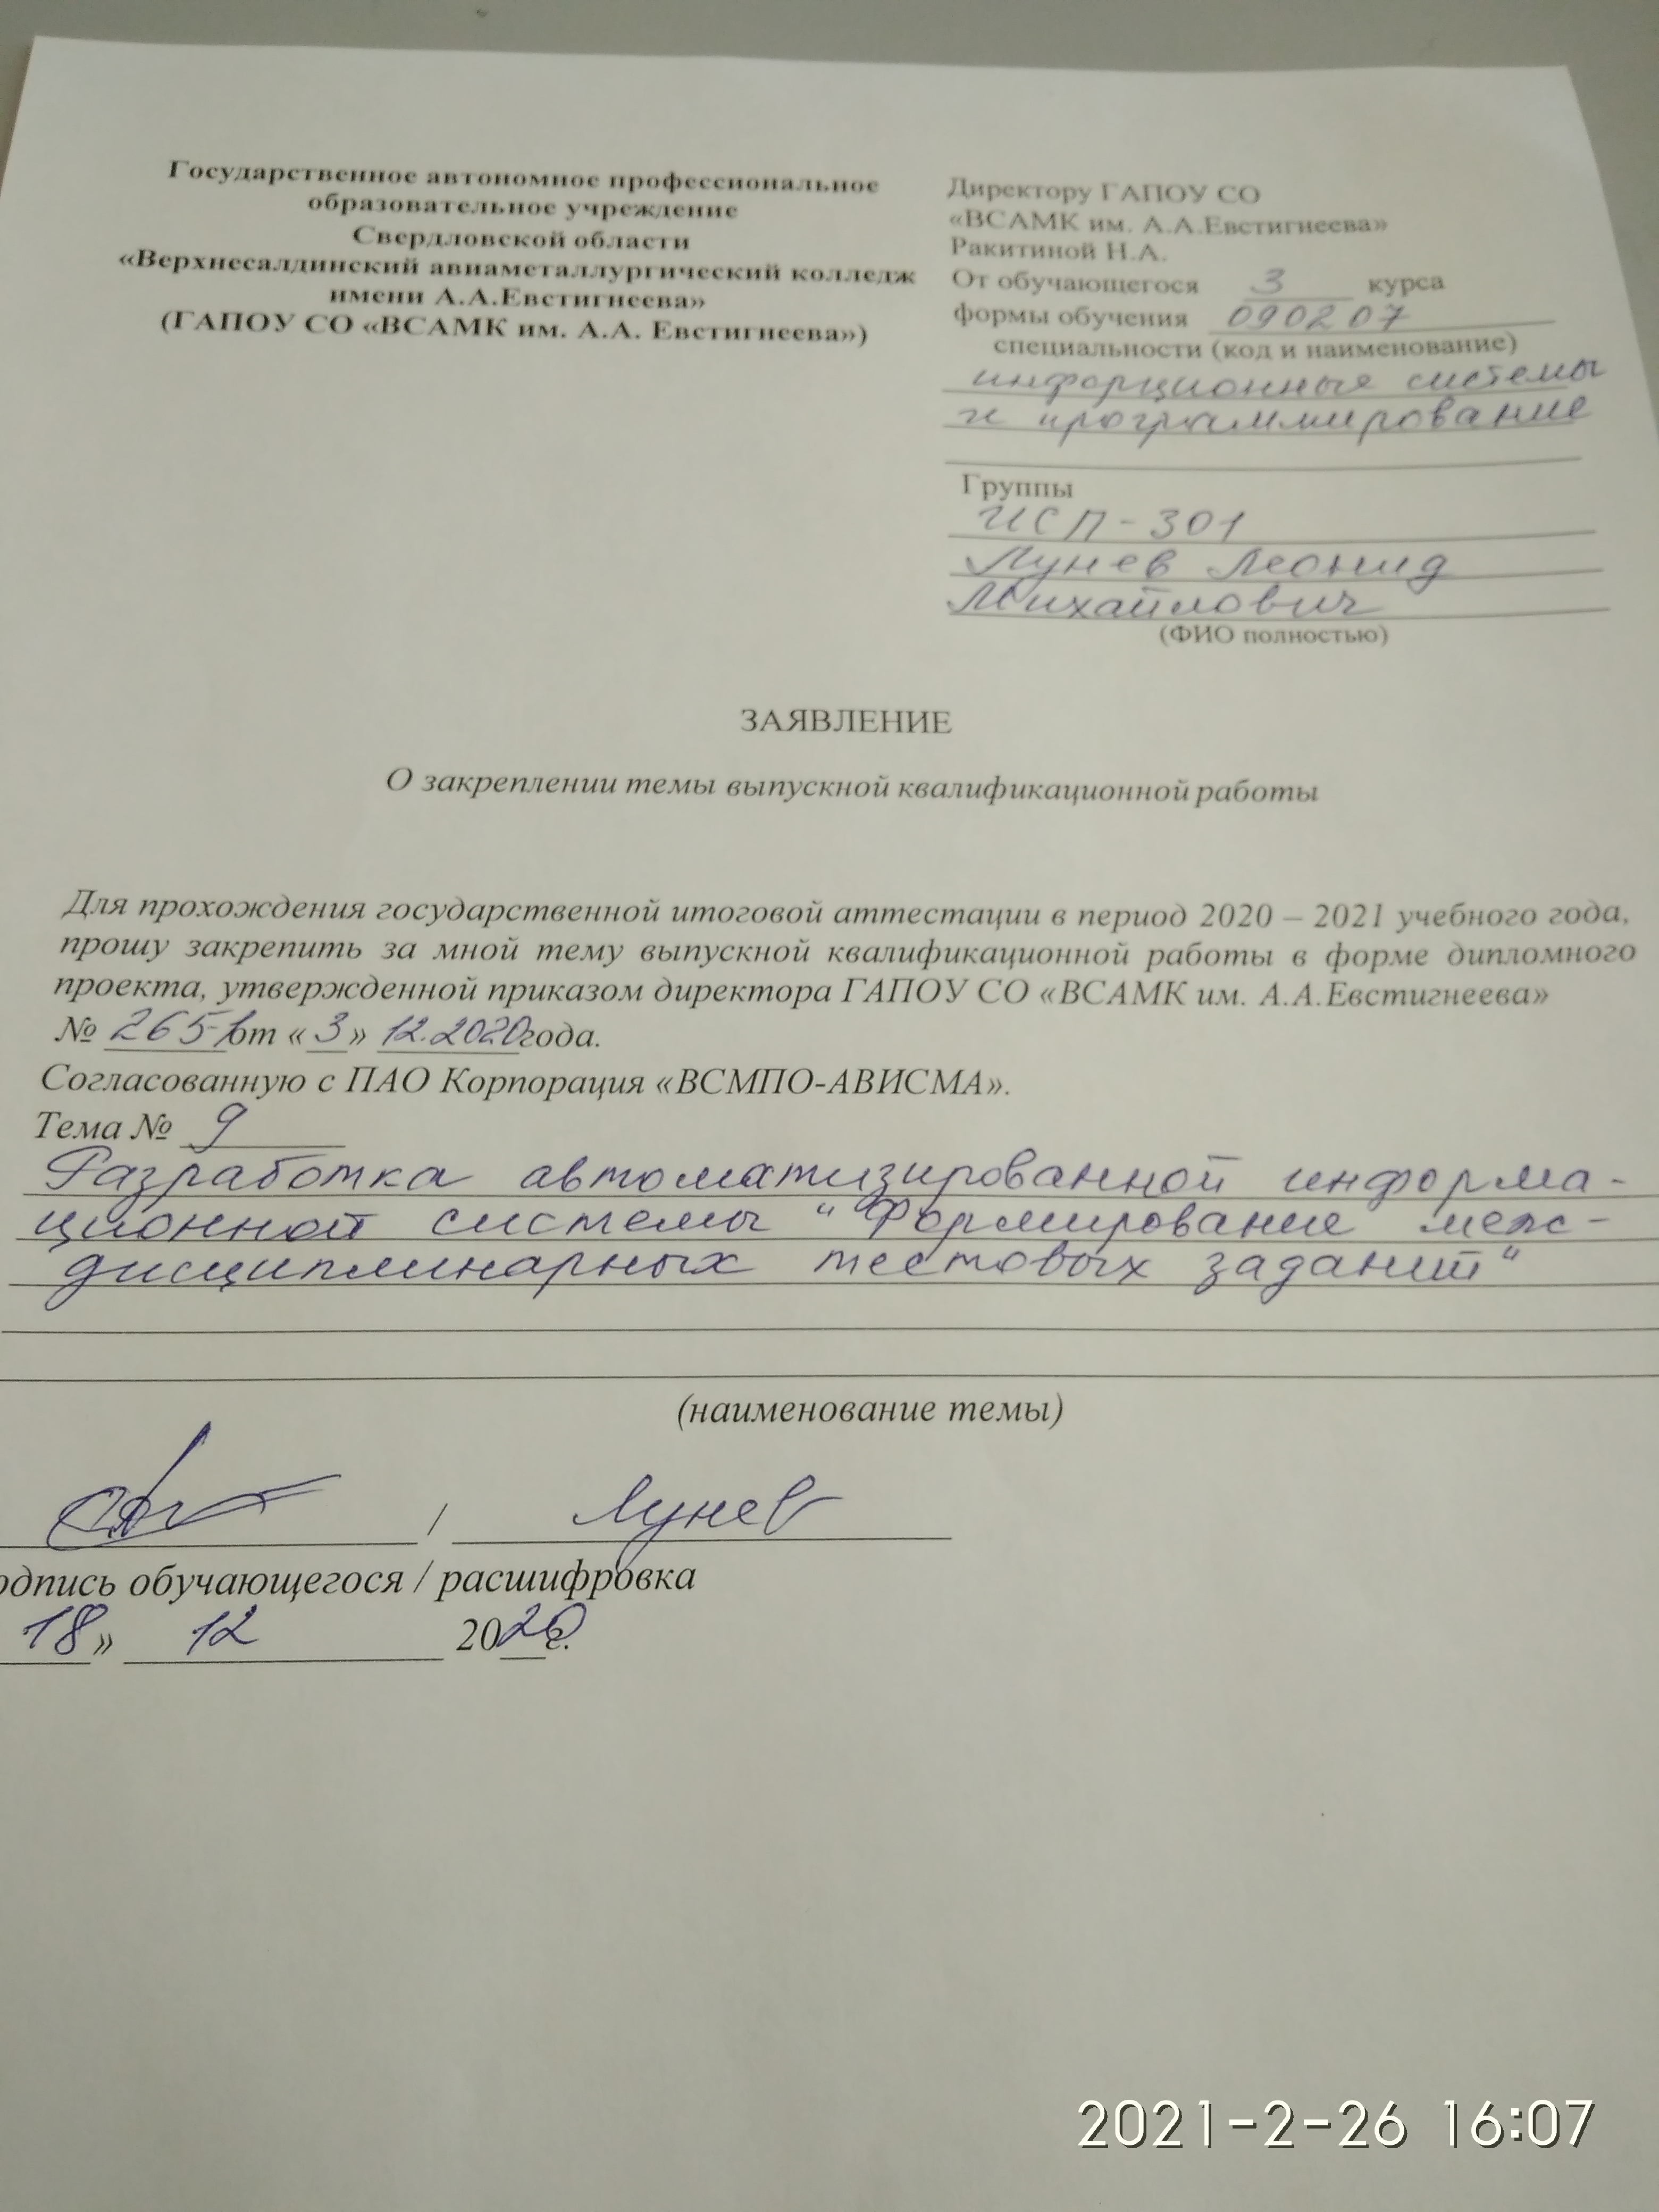 Государственное автономное профессиональное
образовательное учреждение
Свердловской области
«Верхнесалдинский авиаметаллургический колледж
имени А.А.Евстигнеева»
(ГАПОУ СО «ВСАМК им. А.А. Евстигнеева»)
Директору ГАПОУ СО
«ВСАМК им. А.А.Евстигнеева»
Ракитиной Н.А.
От обучающегося 3 курса
формы обучения 090207
специальности (код и наименование)
инфорционные системы
и программирование
Группы
ИСП-301
Лунев Леонид
Михайлович
(ФИО полностью)
ЗАЯВЛЕНИЕ
О закреплении темы выпускной квалификационной работы
Для прохождения государственной итоговой аттестации в период 2020 – 2021 учебного года,
прошу закрепить за мной тему выпускной квалификационной работы в форме дипломного
проекта, утвержденной приказом директора ГАПОУ СО «ВСАМК им. А.А.Евстигнеева»
№ 265-1 от «3» 12.2020 года.
Согласованную с ПАО Корпорация «ВСМПО-АВИСМА».
Тема № 9
Разработка автоматизированной информа-
ционной системы "Формирование меж-
дисциплинарных тестовых заданий"
(наименование темы)
/ Лунев
одпись обучающегося / расшифровка
18» 12 2020 г.
2021-2-26 16:07